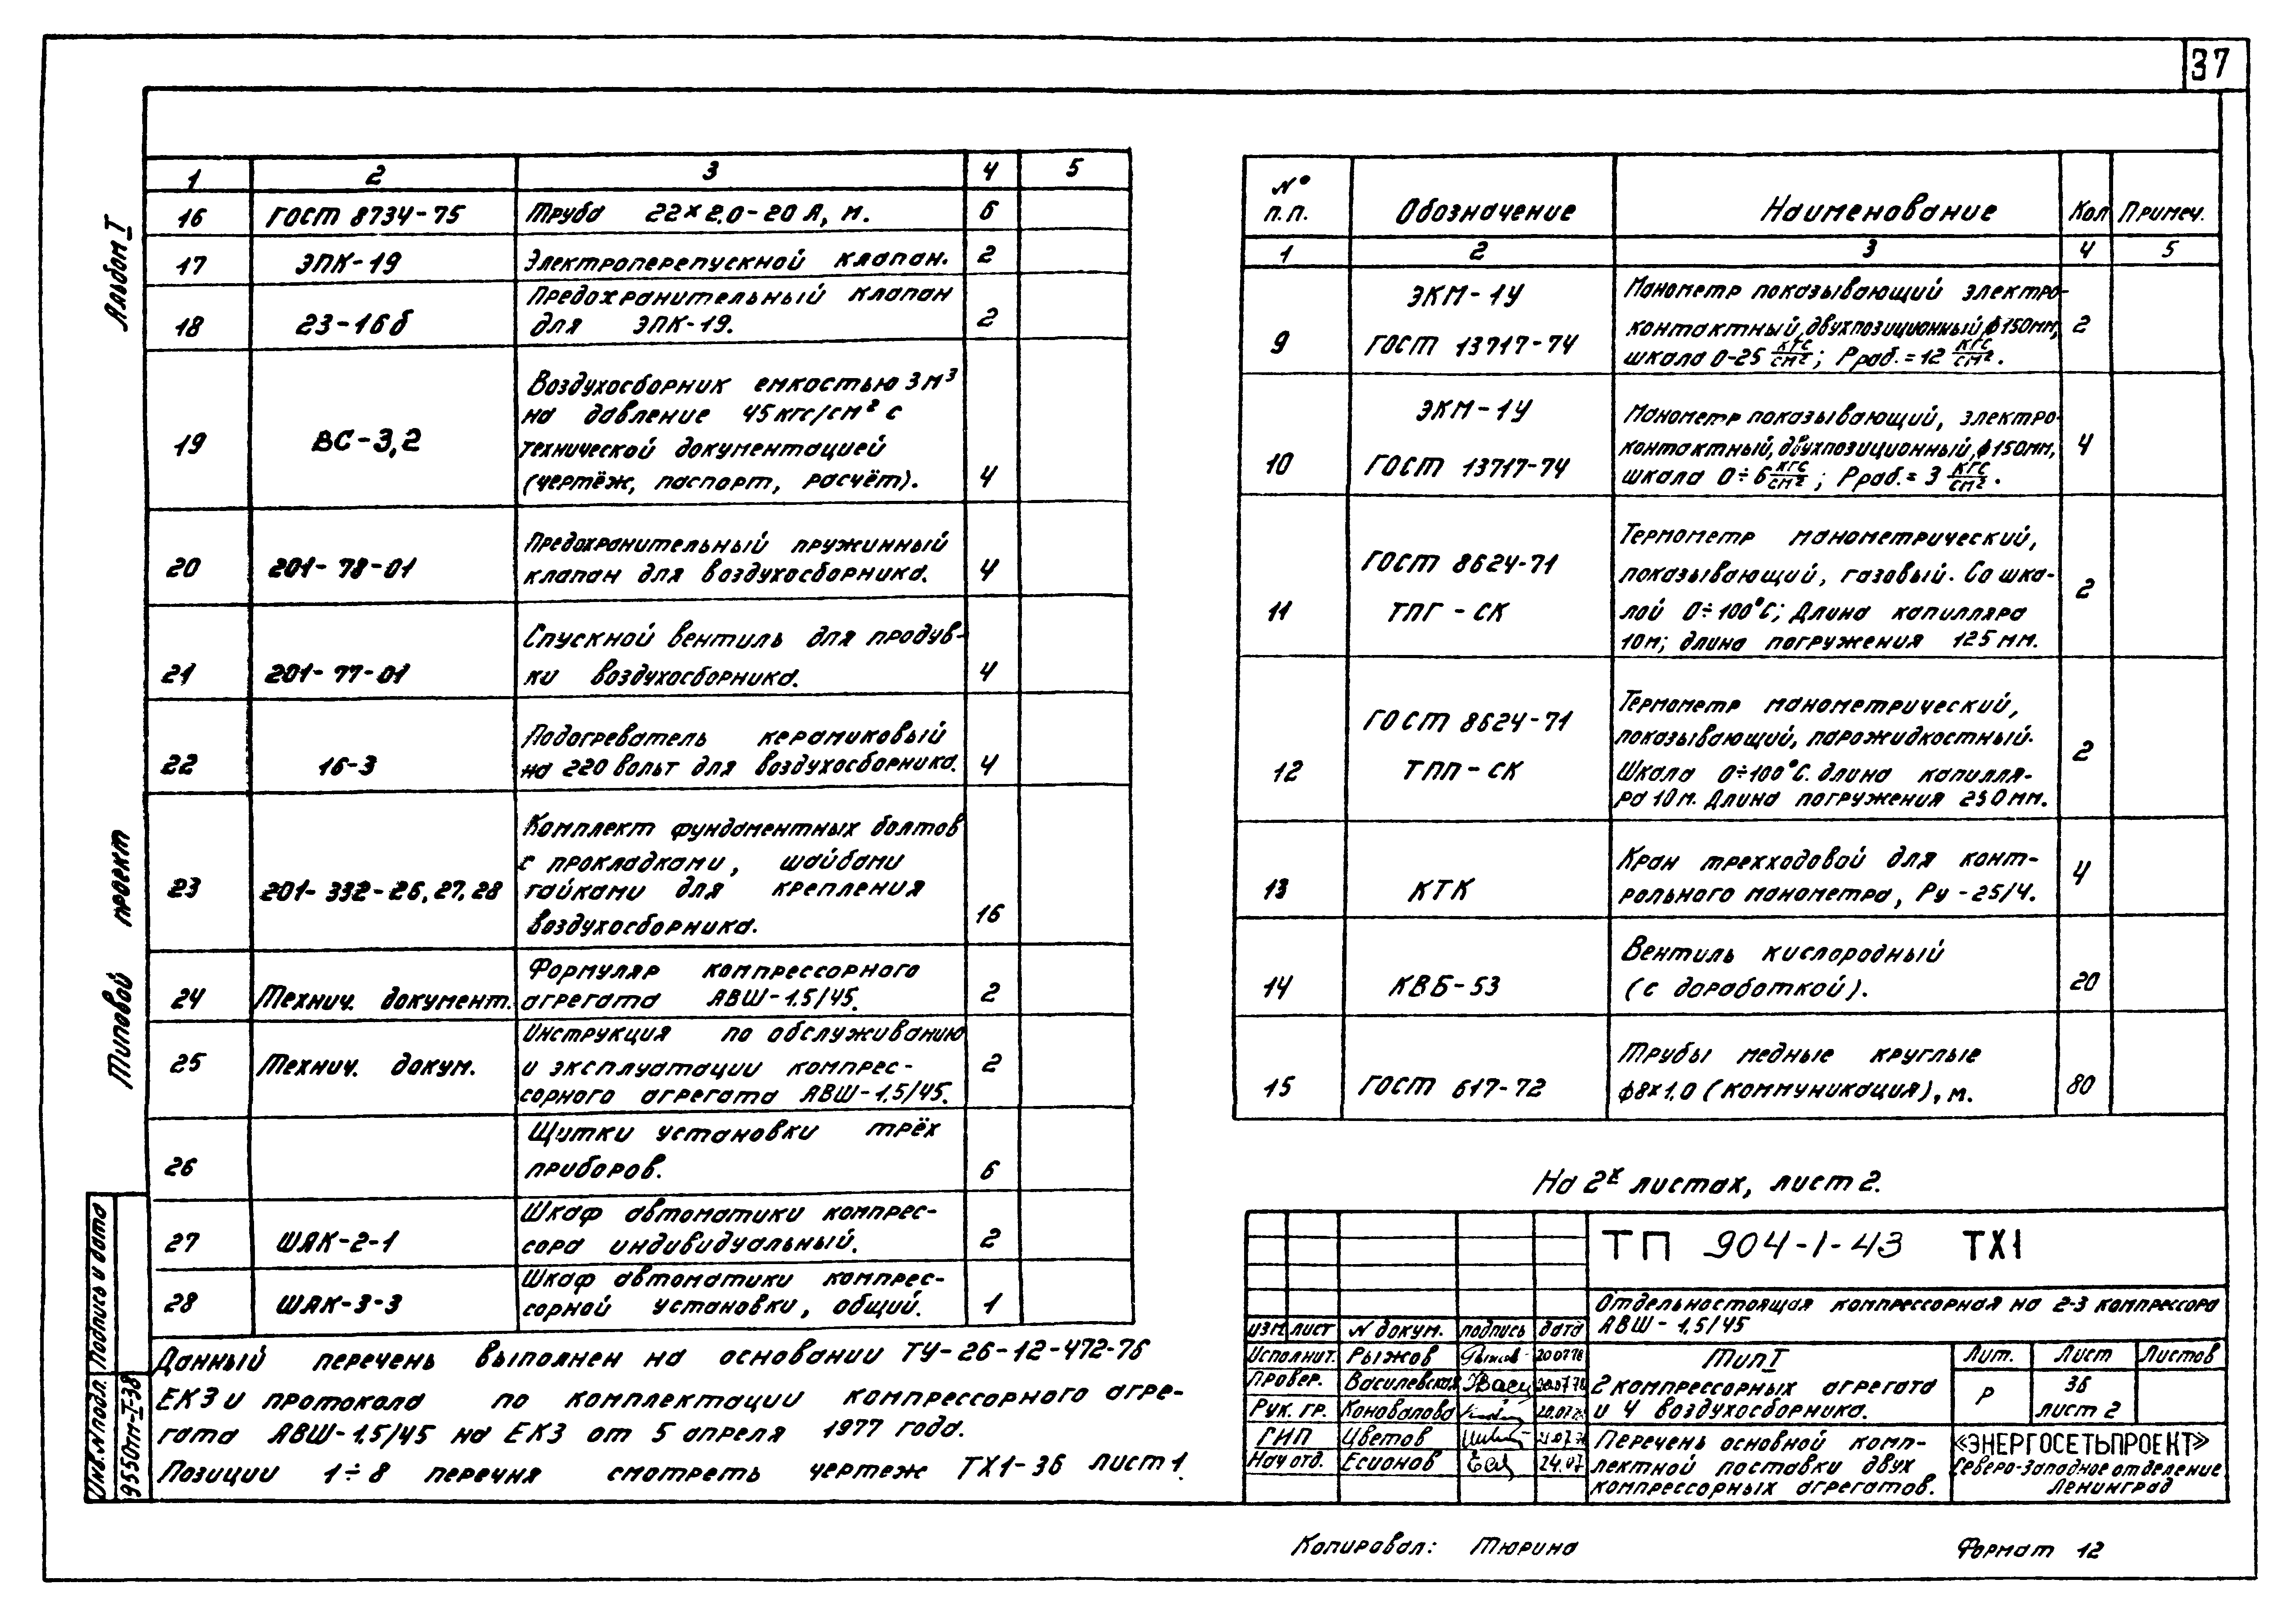 37
Альбом I
Типовой проект
1 2 3 4 5
16 ГОСТ 8734-75 Труба 22×2,0-20 А, м. 6
17 ЭПК-19 Электроперепускной клапан. 2
18 23-16б Предохранительный клапан
для ЭПК-19. 2
19 ВС-3,2 Воздухосборник емкостью 3 м³
на давление 45 кгс/см² с
технической документацией
(чертёж, паспорт, расчёт). 4
20 201-78-01 Предохранительный пружинный
клапан для воздухосборника. 4
21 201-77-01 Спускной вентиль для продув-
ки воздухосборника. 4
22 16-3 Подогреватель керамиковый
на 220 вольт для воздухосборника. 4
23 201-332-26,27,28 Комплект фундаментных болтов
с прокладками, шайбами
гайками для крепления
воздухосборника. 16
24 Технич. документ. Формуляр компрессорного
агрегата АВШ-1,5/45. 2
25 Технич. докум. Инструкция по обслуживанию
и эксплуатации компрес-
сорного агрегата АВШ-1,5/45. 2
26 Щитки установки трёх
приборов. 6
27 ШАК-2-1 Шкаф автоматики компрес-
сора индивидуальный. 2
28 ШАК-3-3 Шкаф автоматики компрес-
сорной установки, общий. 1
Данный перечень выполнен на основании ТУ-26-12-472-76
ЕКЗ и протокола по комплектации компрессорного агре-
гата АВШ-1,5/45 на ЕКЗ от 5 апреля 1977 года.
Позиции 1÷8 перечня смотреть чертеж ТХ1-36 лист 1.
№ п.п. Обозначение Наименование Кол Примеч.
1 2 3 4 5
9 ЭКМ-1У ГОСТ 13717-74 Манометр показывающий электро-
контактный, двухпозиционный, ф150мм, 2
шкала 0-25 кгс/см²; Рраб.=12 кгс/см².
10 ЭКМ-1У ГОСТ 13717-74 Манометр показывающий, электро-
контактный, двухпозиционный, ф150мм, 4
шкала 0÷6 кгс/см²; Рраб.=3 кгс/см².
11 ГОСТ 8624-71 ТПГ-СК Термометр манометрический,
показывающий, газовый. Со шка- 2
лой 0÷100°С; Длина капилляра
10м; длина погружения 125 мм.
12 ГОСТ 8624-71 ТПП-СК Термометр манометрический,
показывающий, парожидкостный. 2
Шкала 0÷100°С. длина капилля-
ра 10 м. Длина погружения 250 мм.
13 КТК Кран трехходовой для конт- 4
рольного манометра, Ру-25/4.
14 КВБ-53 Вентиль кислородный
(с доработкой). 20
15 ГОСТ 617-72 Трубы медные круглые
ф8×1,0 (коммуникация), м. 80
На 2х листах, лист 2.
ТП 904-1-43 ТХ1
Отдельностоящая компрессорная на 2-3 компрессора
АВШ-1,5/45
изм лист № докум. подпись дата
Исполнит. Рыжов 20.07.78
Провер. Василевская
Рук. гр. Коновалова
ГИП Цветов
Нач отд. Есионов 24.07
Тип I
2 компрессорных агрегата
и 4 воздухосборника.
Лит. Лист Листов
Р 36
лист 2
Перечень основной комп-
лектной поставки двух
компрессорных агрегатов.
«ЭНЕРГОСЕТЬПРОЕКТ»
Северо-Западное отделение
Ленинград
Инв.№ подл. Подпись и дата
9550тм-I-38
Копировал: Тюрина
Формат 12